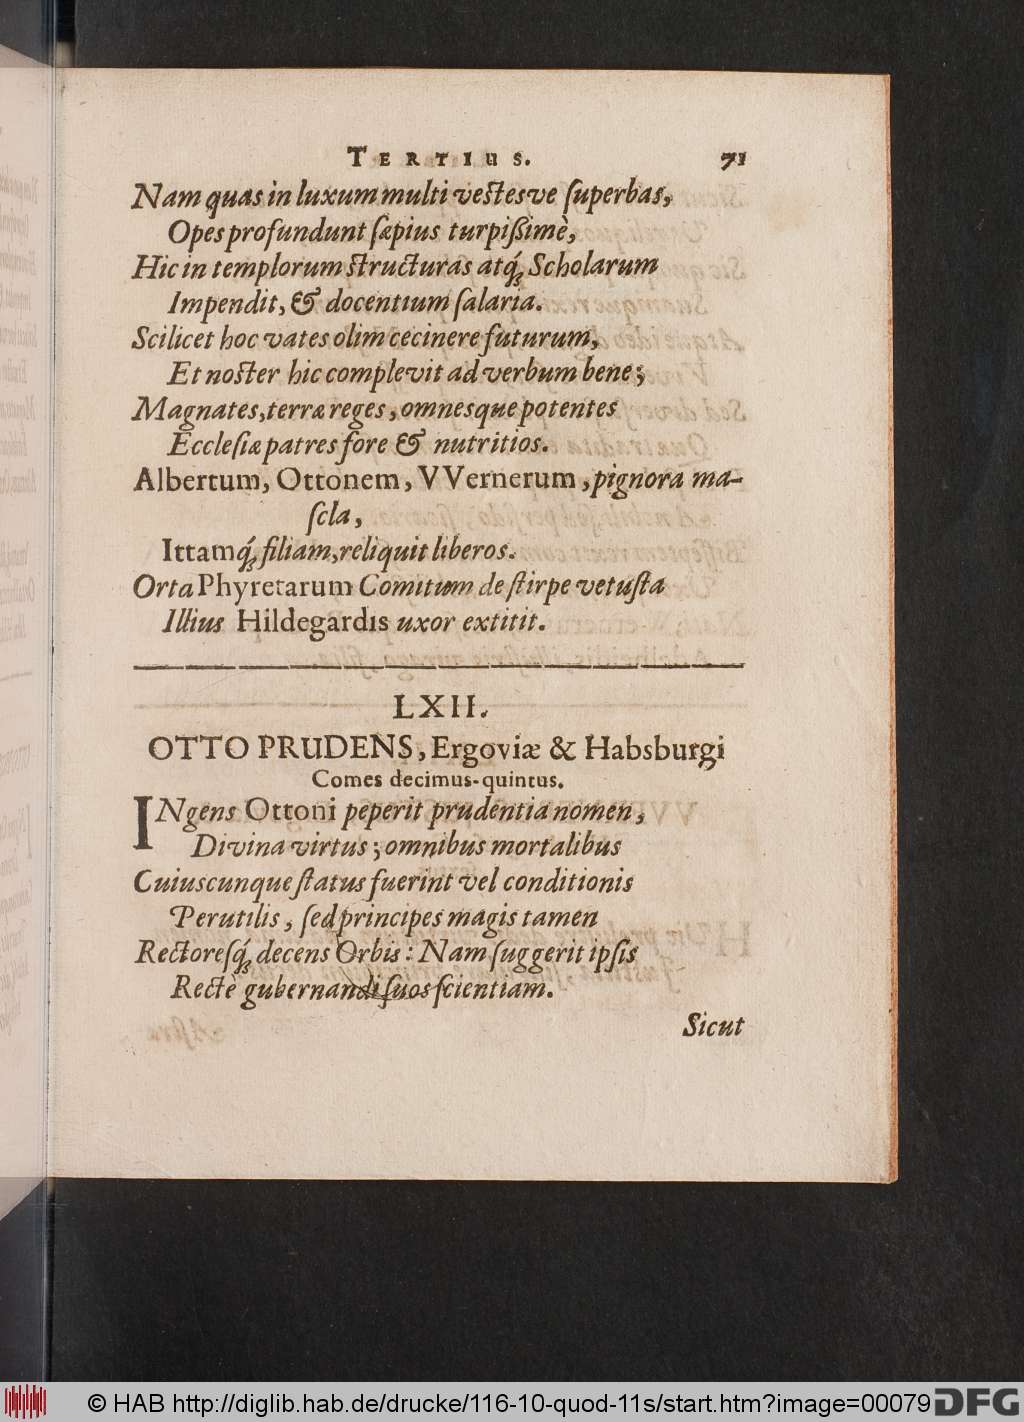 TERTIUS. 71
Nam quas in luxum multi vestesve ſuperbas,
Opes profundunt ſæpius turpißimè,
Hic in templorum structuras atq́; Scholarum
Impendit, & docentium ſalaria.
Scilicet hoc vates olim cecinere futurum,
Et noster hic complevit ad verbum bene;
Magnates, terræ reges, omnesque potentes
Eccleſiæ patres fore & nutritios.
Albertum, Ottonem, VVernerum, pignora ma-
ſcla,
Ittamq́; filiam, reliquit liberos.
Orta Phyretarum Comitum de ſtirpe vetuſta
Illius Hildegardis uxor extitit.
LXII.
OTTO PRUDENS, Ergoviæ & Habsburgi
Comes decimus-quintus.
INgens Ottoni peperit prudentia nomen,
Divina virtus; omnibus mortalibus
Cuiuscunque ſtatus fuerint vel conditionis
Perutilis, ſed principes magis tamen
Rectoreſq́; decens Orbis: Nam ſuggerit ipſis
Rectè gubernandi ſuos ſcientiam.
Sicut
© HAB http://diglib.hab.de/drucke/116-10-quod-11s/start.htm?image=00079
DFG